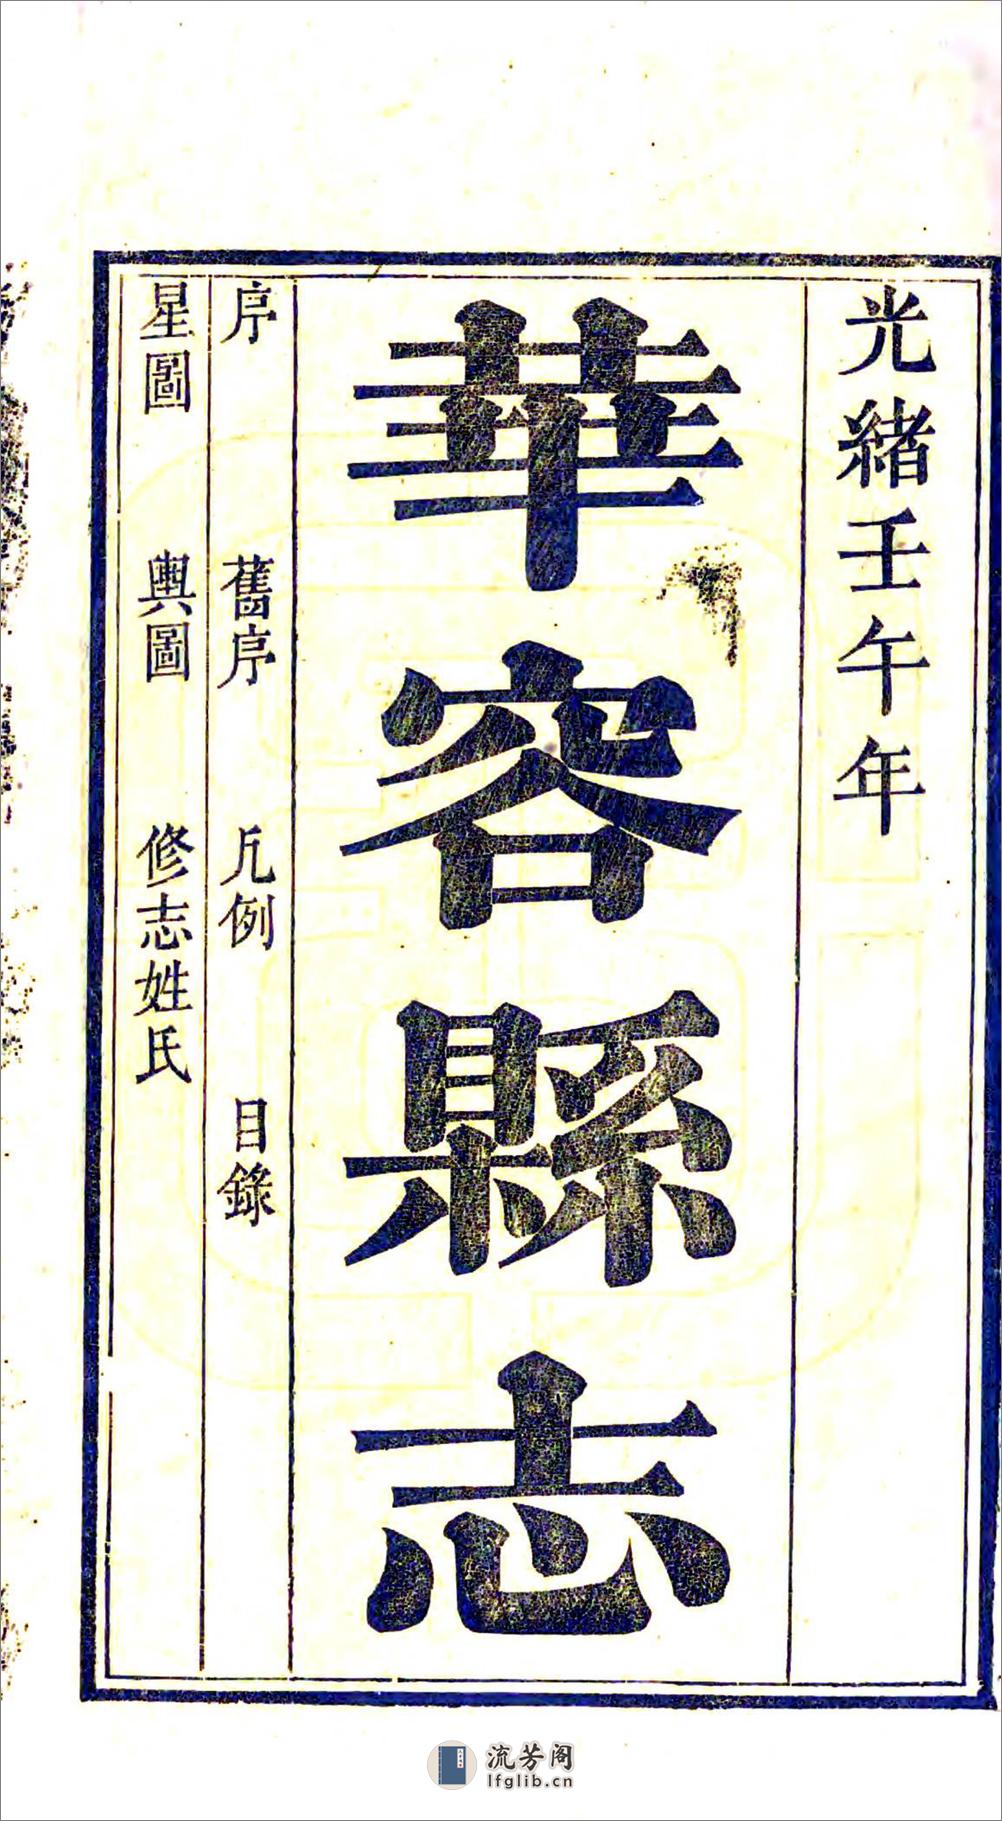 光緒壬午年
華容縣志
序　舊序　凡例　目錄
星圖　輿圖　修志姓氏
流芳阁
lfglib.cn